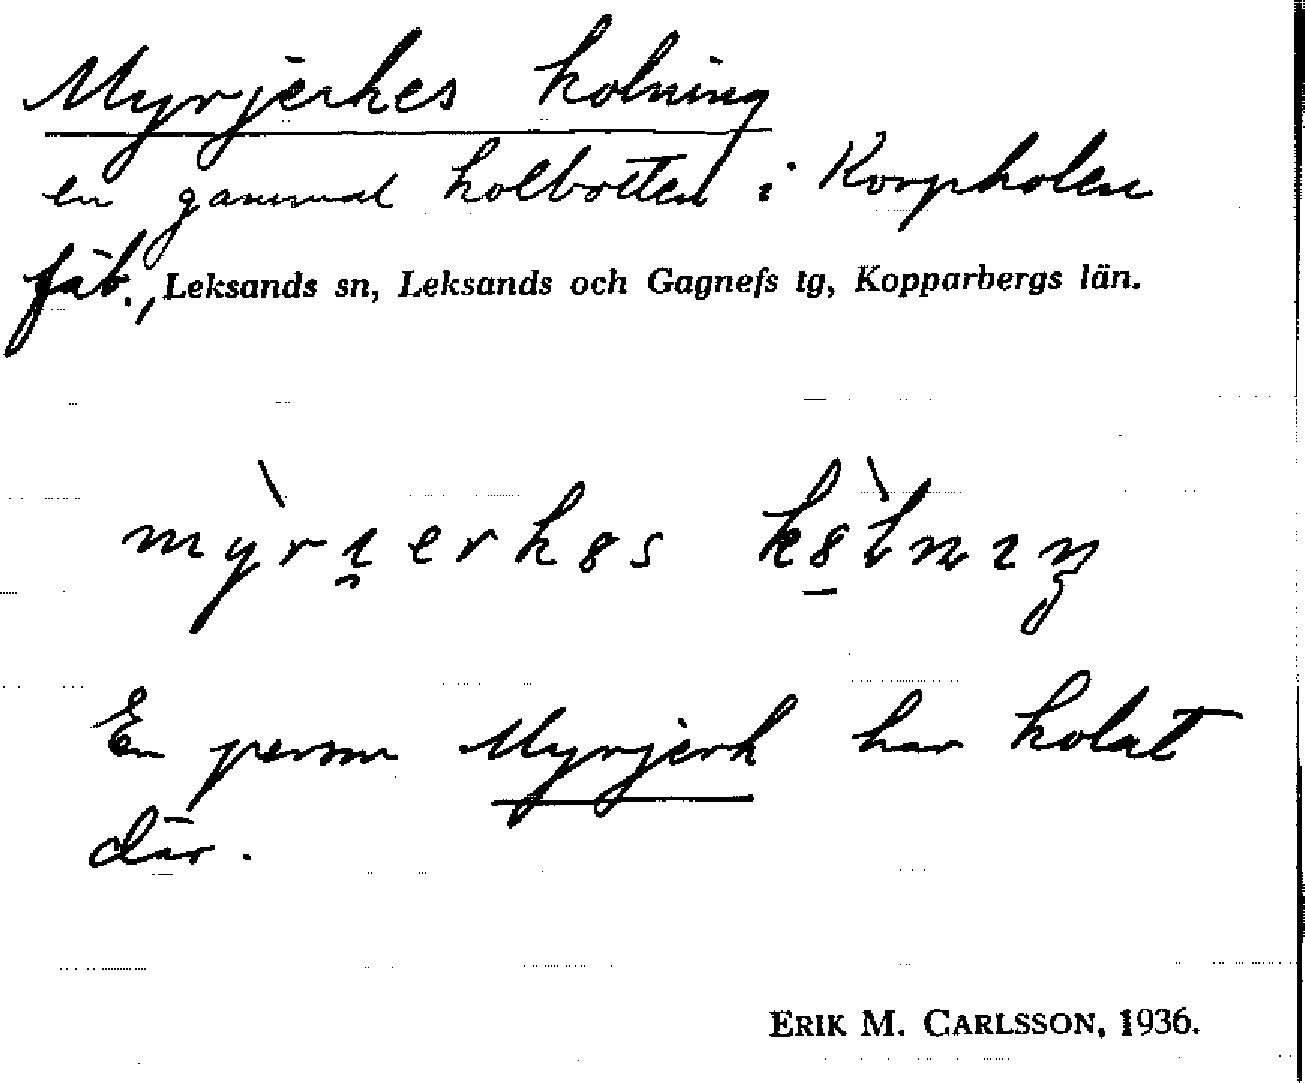 Myrjerkes kolning
en gammal kolbotten i Korpholen
fäb., Leksands sn, Leksands och Gagnefs tg, Kopparbergs län.
En person Myrjerk har kolat
där.
ERIK M. CARLSSON, 1936.